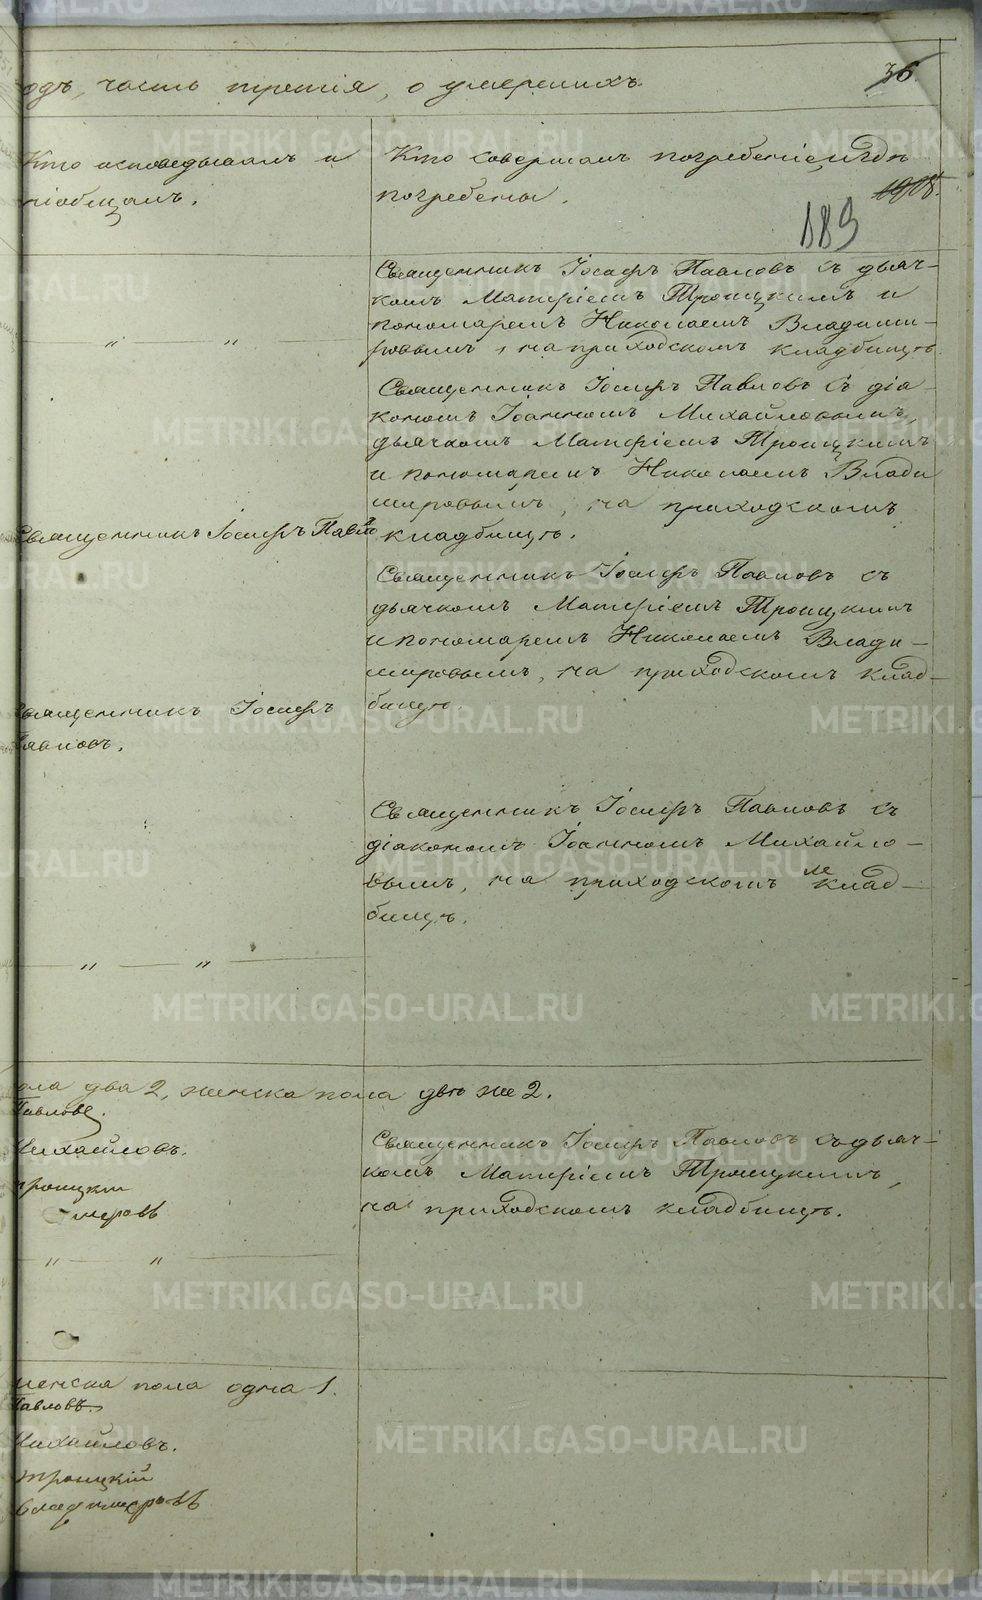 одъ, часть третія, о умершихъ.
36
Кто исповедывалъ и
піобщалъ.
Кто совершалъ погребеніе, и гдѣ
погребены.
189
Священникъ Іосифъ Павловъ съ дьяч-
комъ Матфіемъ Троицкимъ и
пономаремъ Николаемъ Владими-
ровымъ, на приходскомъ кладбищѣ
Священникъ Іосифъ Павловъ съ діа-
кономъ Іоанномъ Михайловымъ,
дьячкомъ Матфіемъ Троицкимъ
и пономаремъ Николаемъ Влади
мировымъ, на приходскомъ
кладбищѣ.
Священникъ Іосифъ Павло
Священникъ Іосифъ Павловъ съ
дьячкомъ Матфіемъ Троицкимъ
и пономаремъ Николаемъ Влади-
мировымъ, на приходскомъ клад-
бищѣ.
вященникъ Іосифъ
авловъ.
Священникъ Іосифъ Павловъ съ
діакономъ Іоанномъ Михайло-
вымъ, на приходскомъ клад-
бищѣ.
ола два 2, женска пола двѣ же 2.
Павловъ.
Михайловъ.
троицкій
мировъ
Священникъ Іосифъ Павловъ съ дьяч-
комъ Матфіемъ Троицкимъ,
на приходскомъ кладбищѣ.
женска пола одна 1.
Павловъ.
Михайловъ.
троицкій
владимировъ
METRIKI.GASO-URAL.RU